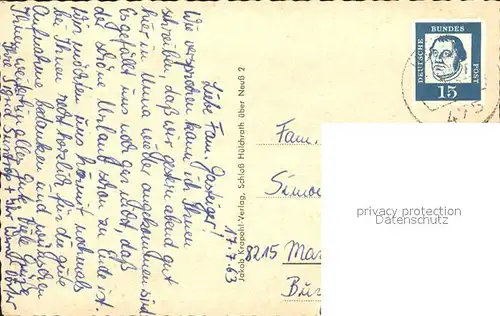 17.7.63
Liebe Fam. Gasteiger!
Wie versprochen kann ich Ihnen
schreiben, daß wir gestern abend gut
hier in Unna wieder angekommen sind.
Es gefällt uns noch gar nicht, daß
der schöne Urlaub schon zu Ende ist.
Wir möchten uns hiermit nochmals
bei Ihnen recht herzlich für die gute
Aufnahme bedanken und wünschen
Ihnen weiterhin alles Gute. Viele Grüße
Ihre
Jakob Krapohl-Verlag, Schloß Hülchrath über Neuß 2
DEUTSCHE BUNDES POST
15
475
Fam.
8215 Mar
privacy protection
Datenschutz